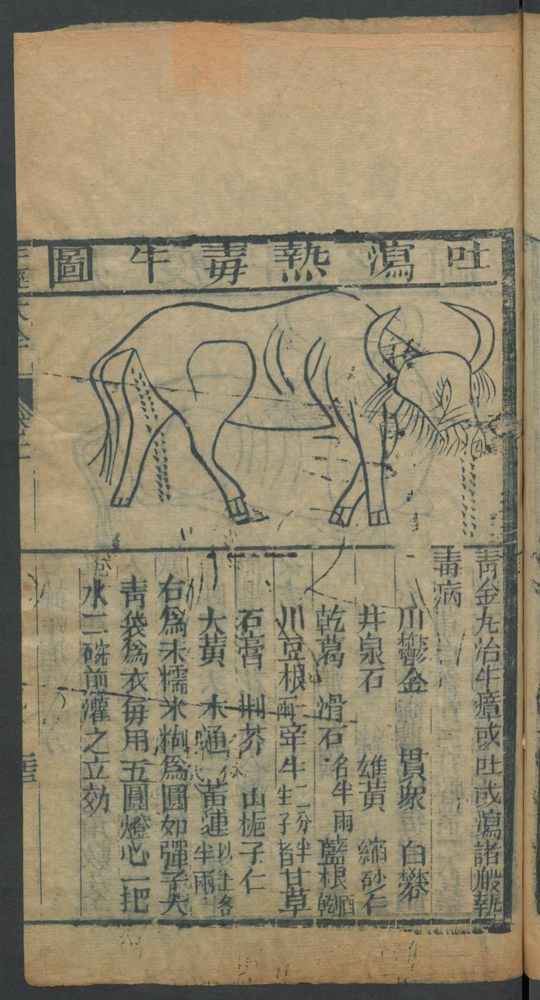 吐瀉熱毒牛圖
青金丸治牛瘴或吐或瀉諸般熱
毒病
川鬱金 貫衆 白礬
井泉石 雄黃 縮砂仁
乾葛 滑石各半兩 藍根
川豆根 牽牛 甘草
石膏 荆芥 山梔子仁
大黃 木通 黃連以上各半兩
右爲末糯米糊爲圓如彈子大
靑袋爲衣每用五圓燈心一把
水二碗煎灌之立効